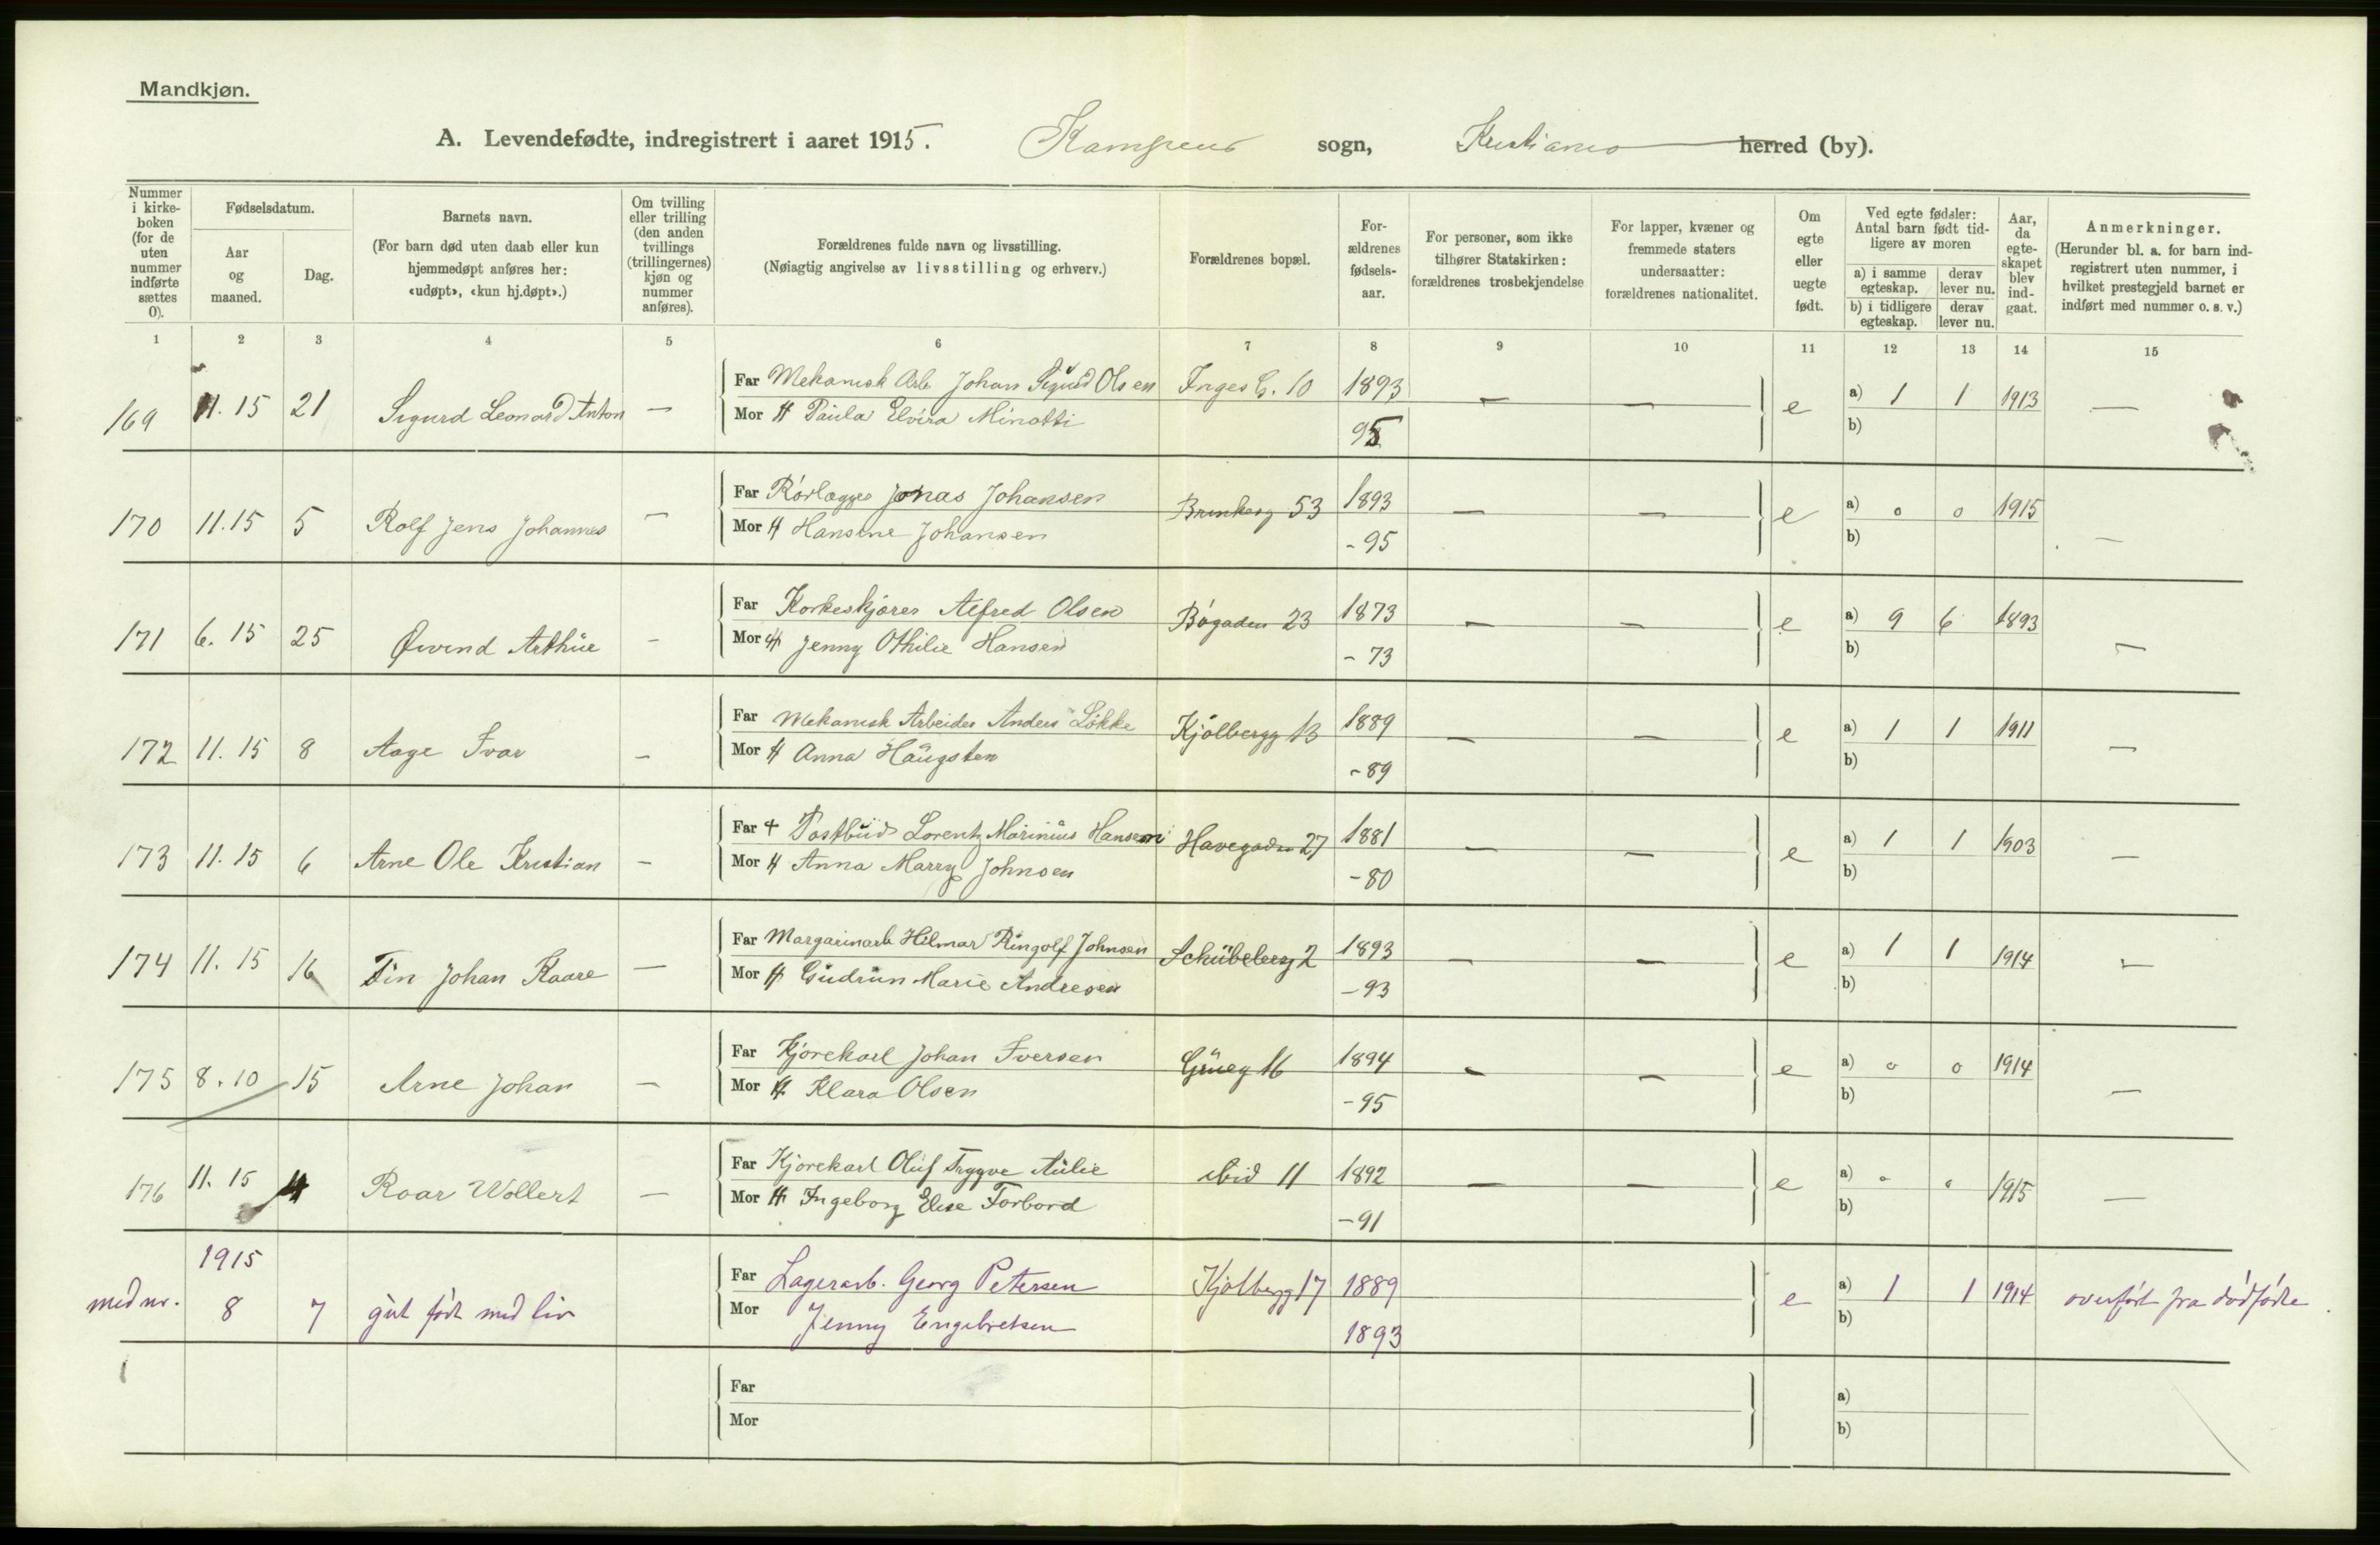 Mandkjøn.
A. Levendefødte, indregistrert i aaret 1915. Kampens sogn, Kristiania herred (by).
Nummer i kirke-boken (for de uten nummer indførte sættes 0).
Fødselsdatum.
Aar og maaned.
Dag.
Barnets navn.
(For barn død uten daab eller kun hjemmedøpt anføres her: «udøpt», «kun hj.døpt».)
Om tvilling eller trilling (den anden tvillings (trillingernes) kjøn og nummer anføres).
Forældrenes fulde navn og livsstilling.
(Nøiagtig angivelse av livsstilling og erhverv.)
Forældrenes bopæl.
For-ældrenes fødsels-aar.
For personer, som ikke tilhører Statskirken: forældrenes trosbekjendelse
For lapper, kvæner og fremmede staters undersaatter: forældrenes nationalitet.
Om egte eller uegte født.
Ved egte fødsler: Antal barn født tid-ligere av moren
a) i samme egteskap.
derav lever nu.
b) i tidligere egteskap.
derav lever nu.
Aar, da egte-skapet blev ind-gaat.
Anmerkninger.
(Herunder bl. a. for barn ind-registrert uten nummer, i hvilket prestegjeld barnet er indført med nummer o. s. v.)
1 2 3 4 5 6 7 8 9 10 11 12 13 14 15
Far Mekanisk Arb. Johan Sigurd Olsen Inges G. 10 1893
169 11.15 21 Sigurd Leonard Anton — — — e a) 1 1 1913 —
Mor H Paula Elvira Minotti 95 b)
Far Rörlægger Jonas Johansen Brinkeng 53 1893
170 11.15 5 Rolf Jens Johannes — — — e a) 0 0 1915 —
Mor H Hansine Johansen - 95 b)
Far Korkeskjærer Alfred Olsen Bögaden 23 1873
171 6.15 25 Øivind Arthur — — — e a) 9 6 1893 —
Mor H Jenny Othilie Hansen - 73 b)
Far Mekanisk Arbeider Anders Lökke Kjölbergg 13 1889
172 11.15 8 Aage Ivar — — — e a) 1 1 1911 —
Mor H Anna Haugsten - 89 b)
Far + Postbud Lorentz Marinius Hansen Havegaden 27 1881
173 11.15 6 Arne Ole Kristian — — — e a) 1 1 1903 —
Mor H Anna Marry Johnsen - 80 b)
Far Margarinarb Hilmar Ringolf Johnsen Schübelerg 2 1893
174 11.15 16 Fin Johan Kaare — — — e a) 1 1 1914 —
Mor H Gudrun Marie Andresen - 93 b)
Far Kjörekarl Johan Iversen Grueg 16 1894
175 8.10 15 Arne Johan — — — e a) 0 0 1914 —
Mor H Klara Olsen - 95 b)
Far Kjörekarl Oluf Tryggve Aulie ibid 11 1892
176 11.15 4 Roar Wollert — — — e a) 0 0 1915 —
Mor H Ingeborg Elise Forbord - 91 b)
1915
Far Lagerarb. Georg Petersen Kjölbergg 17 1889
8 7 gut födt med liv e a) 1 1 1914 overfört fra dödfödte
Mor Jenny Engebretsen 1893 b)
Far
a)
Mor
b)